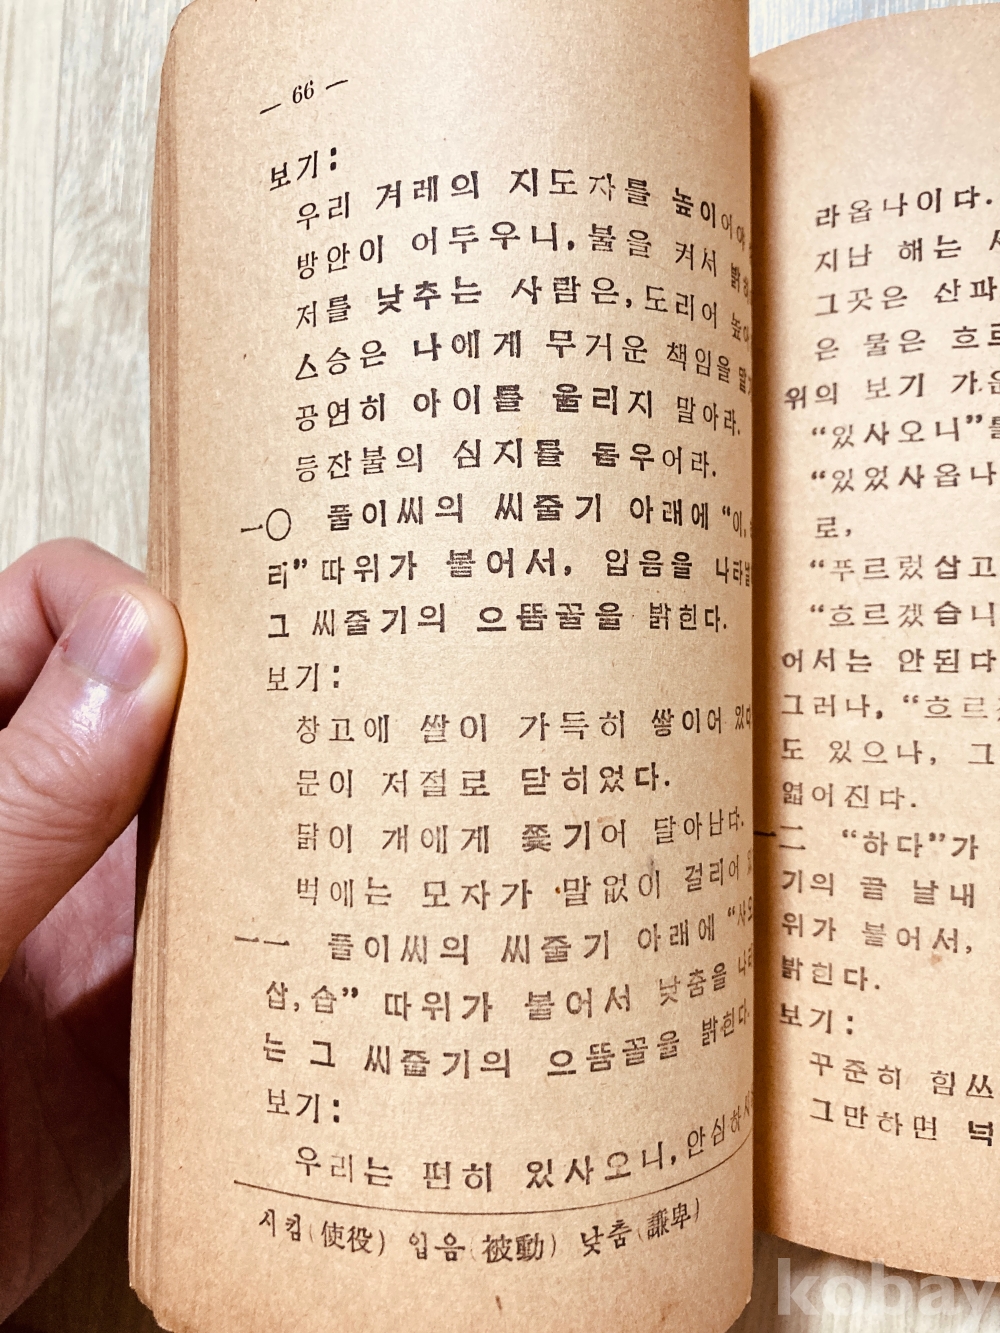 — 66 —
보기:
우리 겨레의 지도자를 높이어야
방안이 어두우니, 불을 켜서
저를 낮추는 사람은, 도리어
스승은 나에게 무거운 책임을
공연히 아이를 울리지 말아라.
등잔불의 심지를 돋우어라.
一〇 풀이씨의 씨줄기 아래에 “이,
리” 따위가 붙어서, 입음을
그 씨줄기의 으뜸꼴을 밝힌다.
보기:
창고애 쌀이 가득히 쌓이어 있다
문이 저절로 닫히었다.
닭이 개에게 쫓기어 달아난다.
벽에는 모자가 말없이 걸리어
一一 풀이씨의 씨줄기 아래에
삽, 습” 따위가 붙어서 낮춤을
는 그 씨줄기의 으뜸꼴을 밝힌다.
보기:
우리는 편히 있사오니,
시킴(使役) 입음(被動) 낮춤(謙卑)
라옵나이다.
지난 해는
그곳은 산
은 물은
위의 보기
“있사오니”
“있었사옵나
로,
“푸르렀삽고
“흐르겠습니
어서는 안된다
그러나, “흐르
도 있으나, 그
없어진다.
一二 “하다”가
기의 끝 날내
위가 붙어서,
밝힌다.
보기:
꾸준히 힘쓰
그만하면 넉
kobay